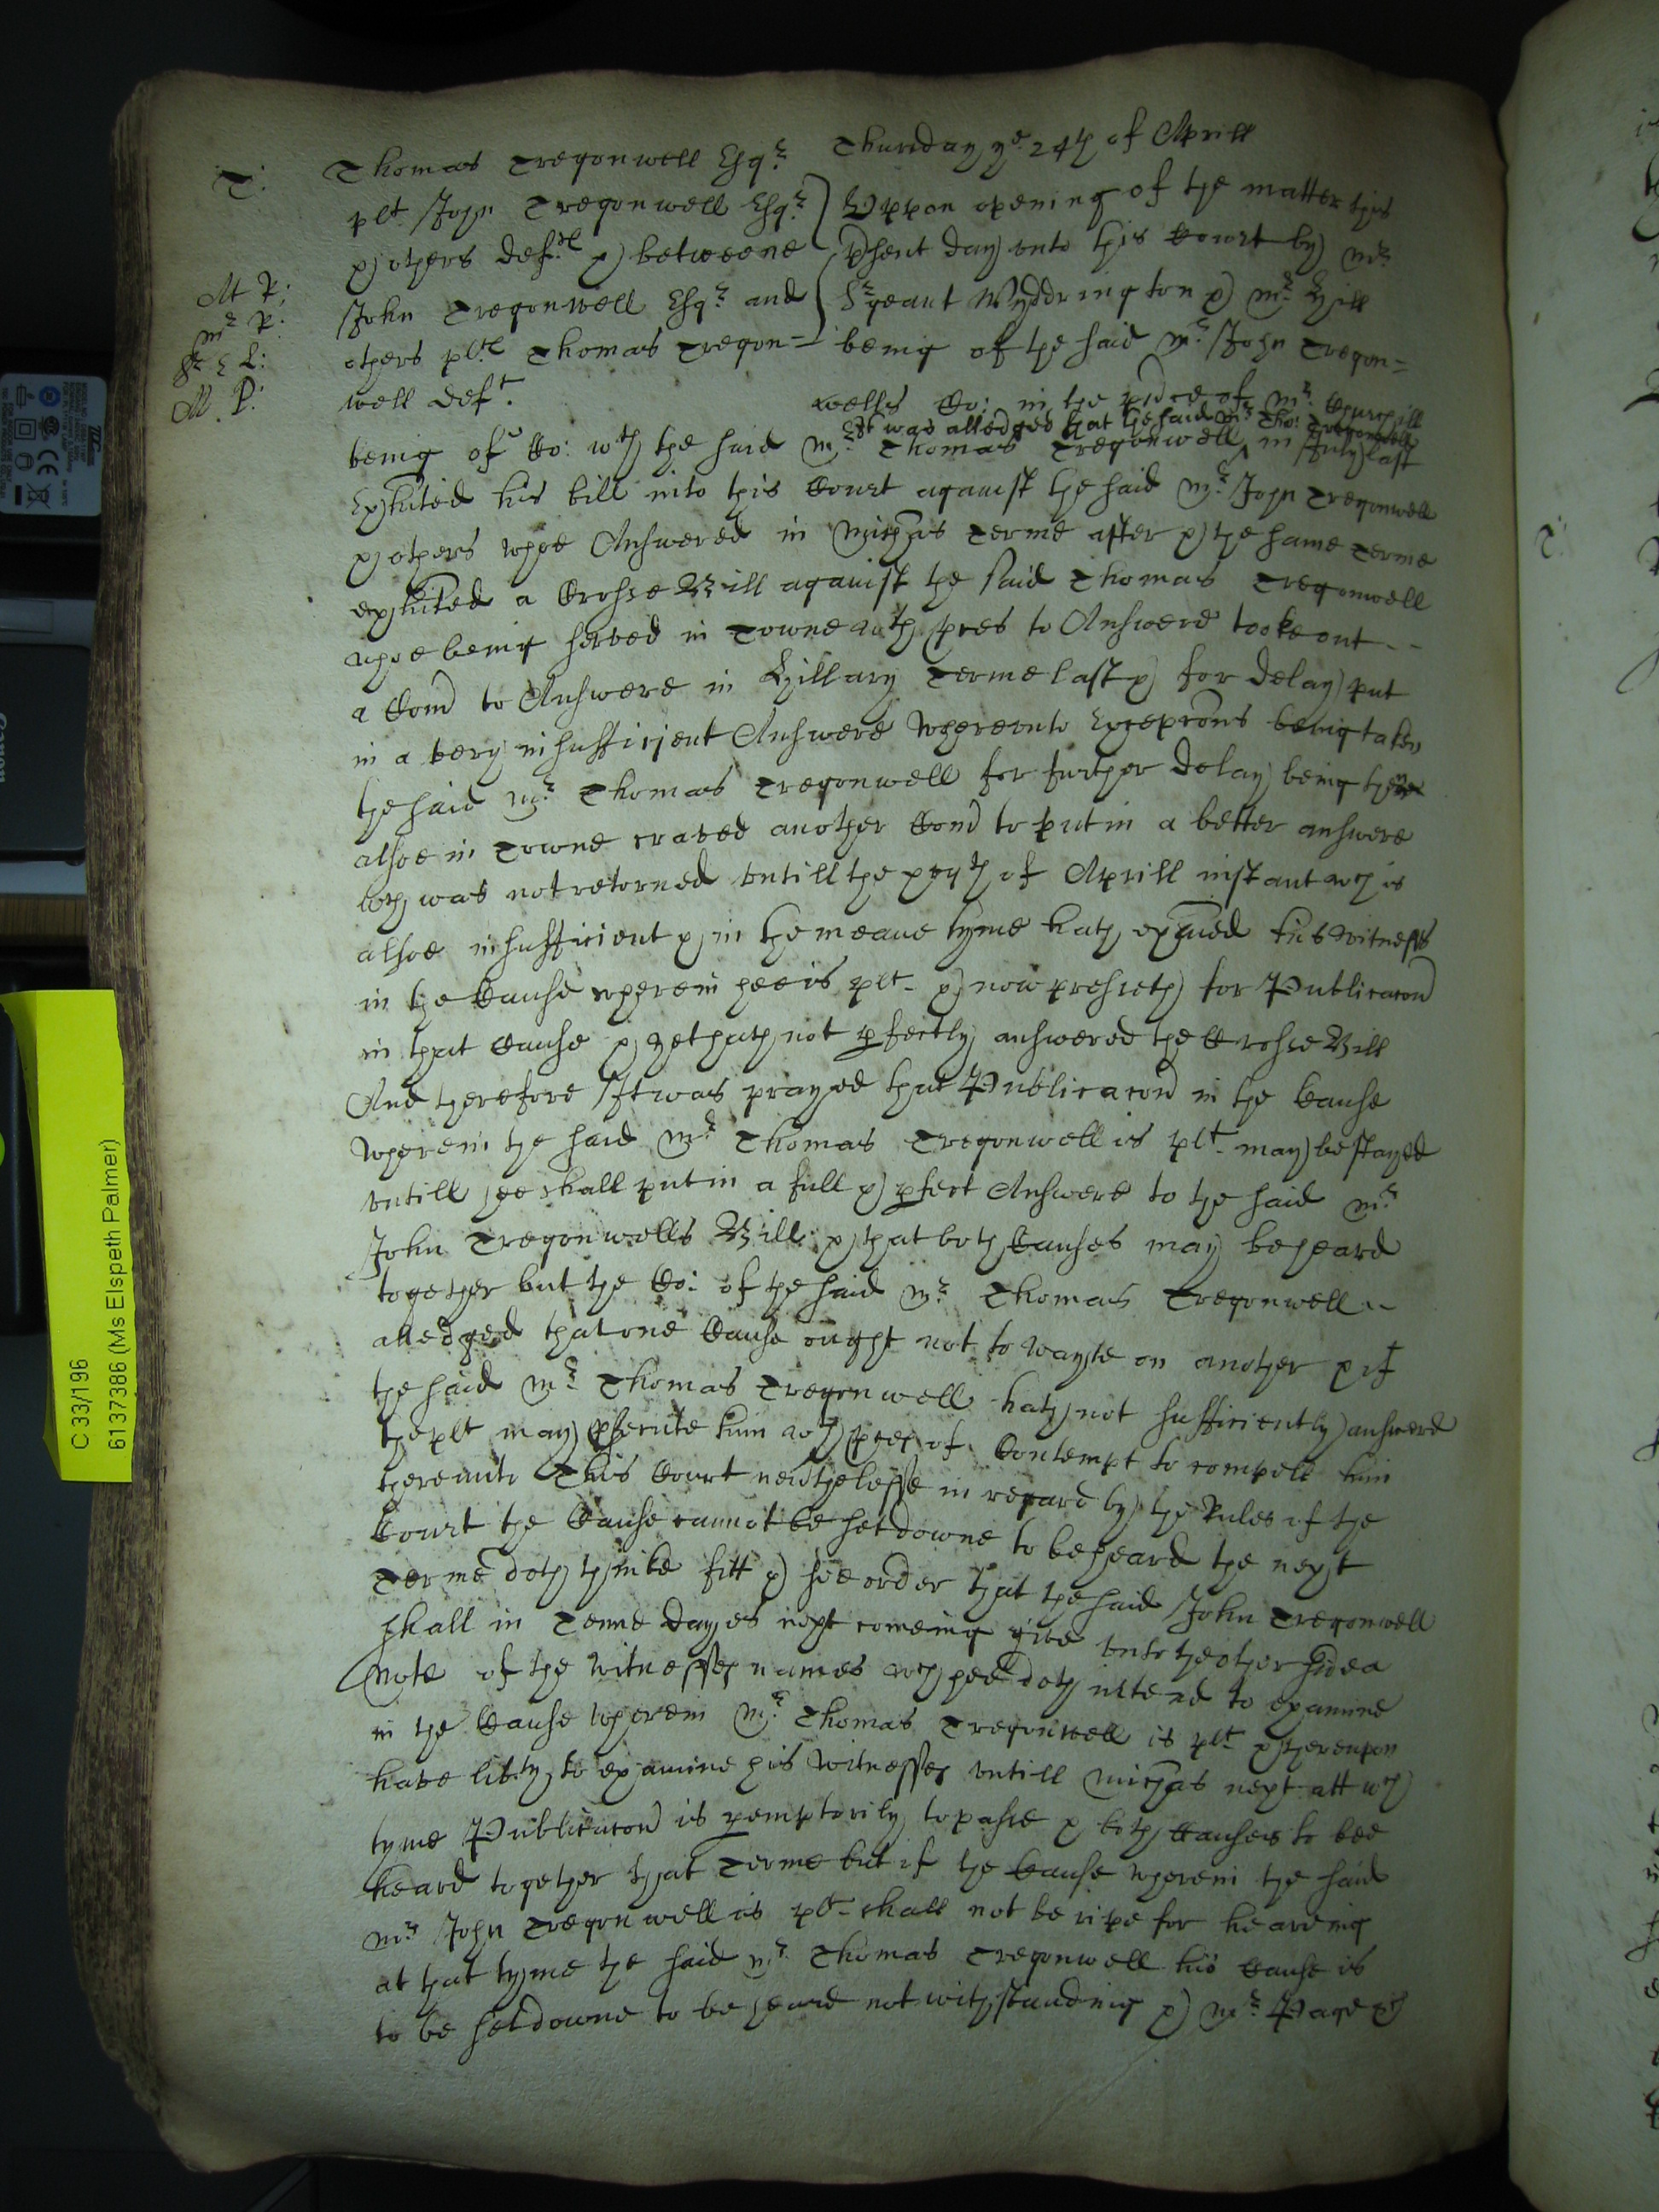 Thursday ye 24th of Aprill
T: Thomas Tregonwell Esqr
plt John Tregonwell Esqr
& others defts & betweene
John Tregonwell Esqr and
others plts Thomas Tregon=
well deft.
M P:
mr P:
M. P.
Uppon opening of the matter this
psent day unto this Court by mr
Srgeant Wyddrington & mr Hill
being of the said mr John Tregon=
wells Co: in the psence of mr Churchill
being of Co: wth the said mr Thomas Tregonwell It was alledged that the said mr Tho: Tregonwell in July last
Exhited his bill into this Court against the said mr John Tregonwell
& others whoe Answered in Michas terme after & the same terme
exhited a Crosse Bill against the said Thomas Tregonwell
whoe being served in Towne wth pces to Answere tooke out --
a Com to Answere in Hillary terme last & for delay put
in a very insufficient Answere whereunto Excepcons being taken
the said mr Thomas Tregonwell for further delay being then
alsoe in Towne craved another Com to put in a better answere
wch was not retorned untill the xvth of Aprill instant wch is
alsoe insufficient & in the meane tyme hath exaied his witnesses
in the Cause wherein hee is plt & now presseth for Publicacon
in that Cause & yet hath not pfectly answered the Crosse Bill
And therefore It was prayed that Publicacon in the Cause
wherein the said mr Thomas Tregonwell is plt may be stayed
untill hee shall put in a full & pfect Answere to the said mr
John Tregonwells Bill & that both Causes may be heard
together but the Co: of the said mr Thomas Tregonwell --
alledged that one Cause ought not to wayte on another & if
the said mr Thomas Tregonwell hath not sufficiently answered
the plt may psecute him wth pces of Contempt to compell him
thereunto This Court nevthelesse in regard by the Rules of the
Court the Cause cannot be set downe to be heard the next
Terme doth thinke fitt & soe order that the said John Tregonwell
shall in Tenne dayes next comeing give unto the other side a
Note of the witnesses names wch hee doth intend to examine
in the Cause wherein mr Thomas Tregonwell is plt & thereupon
have libty to examine his witnesses untill Michas next att wch
tyme Publicacon is pemptorily to passe & both Causes to bee
heard together that Terme but if the Cause wherein the said
mr John Tregonwell is plt shall not be ripe for heareing
at that tyme the said mr Thomas Tregonwell his Cause is
to be set downe to be heard notwithstanding & mr Page
C 33/196
61 37386 (Ms Elspeth Palmer)
Canon